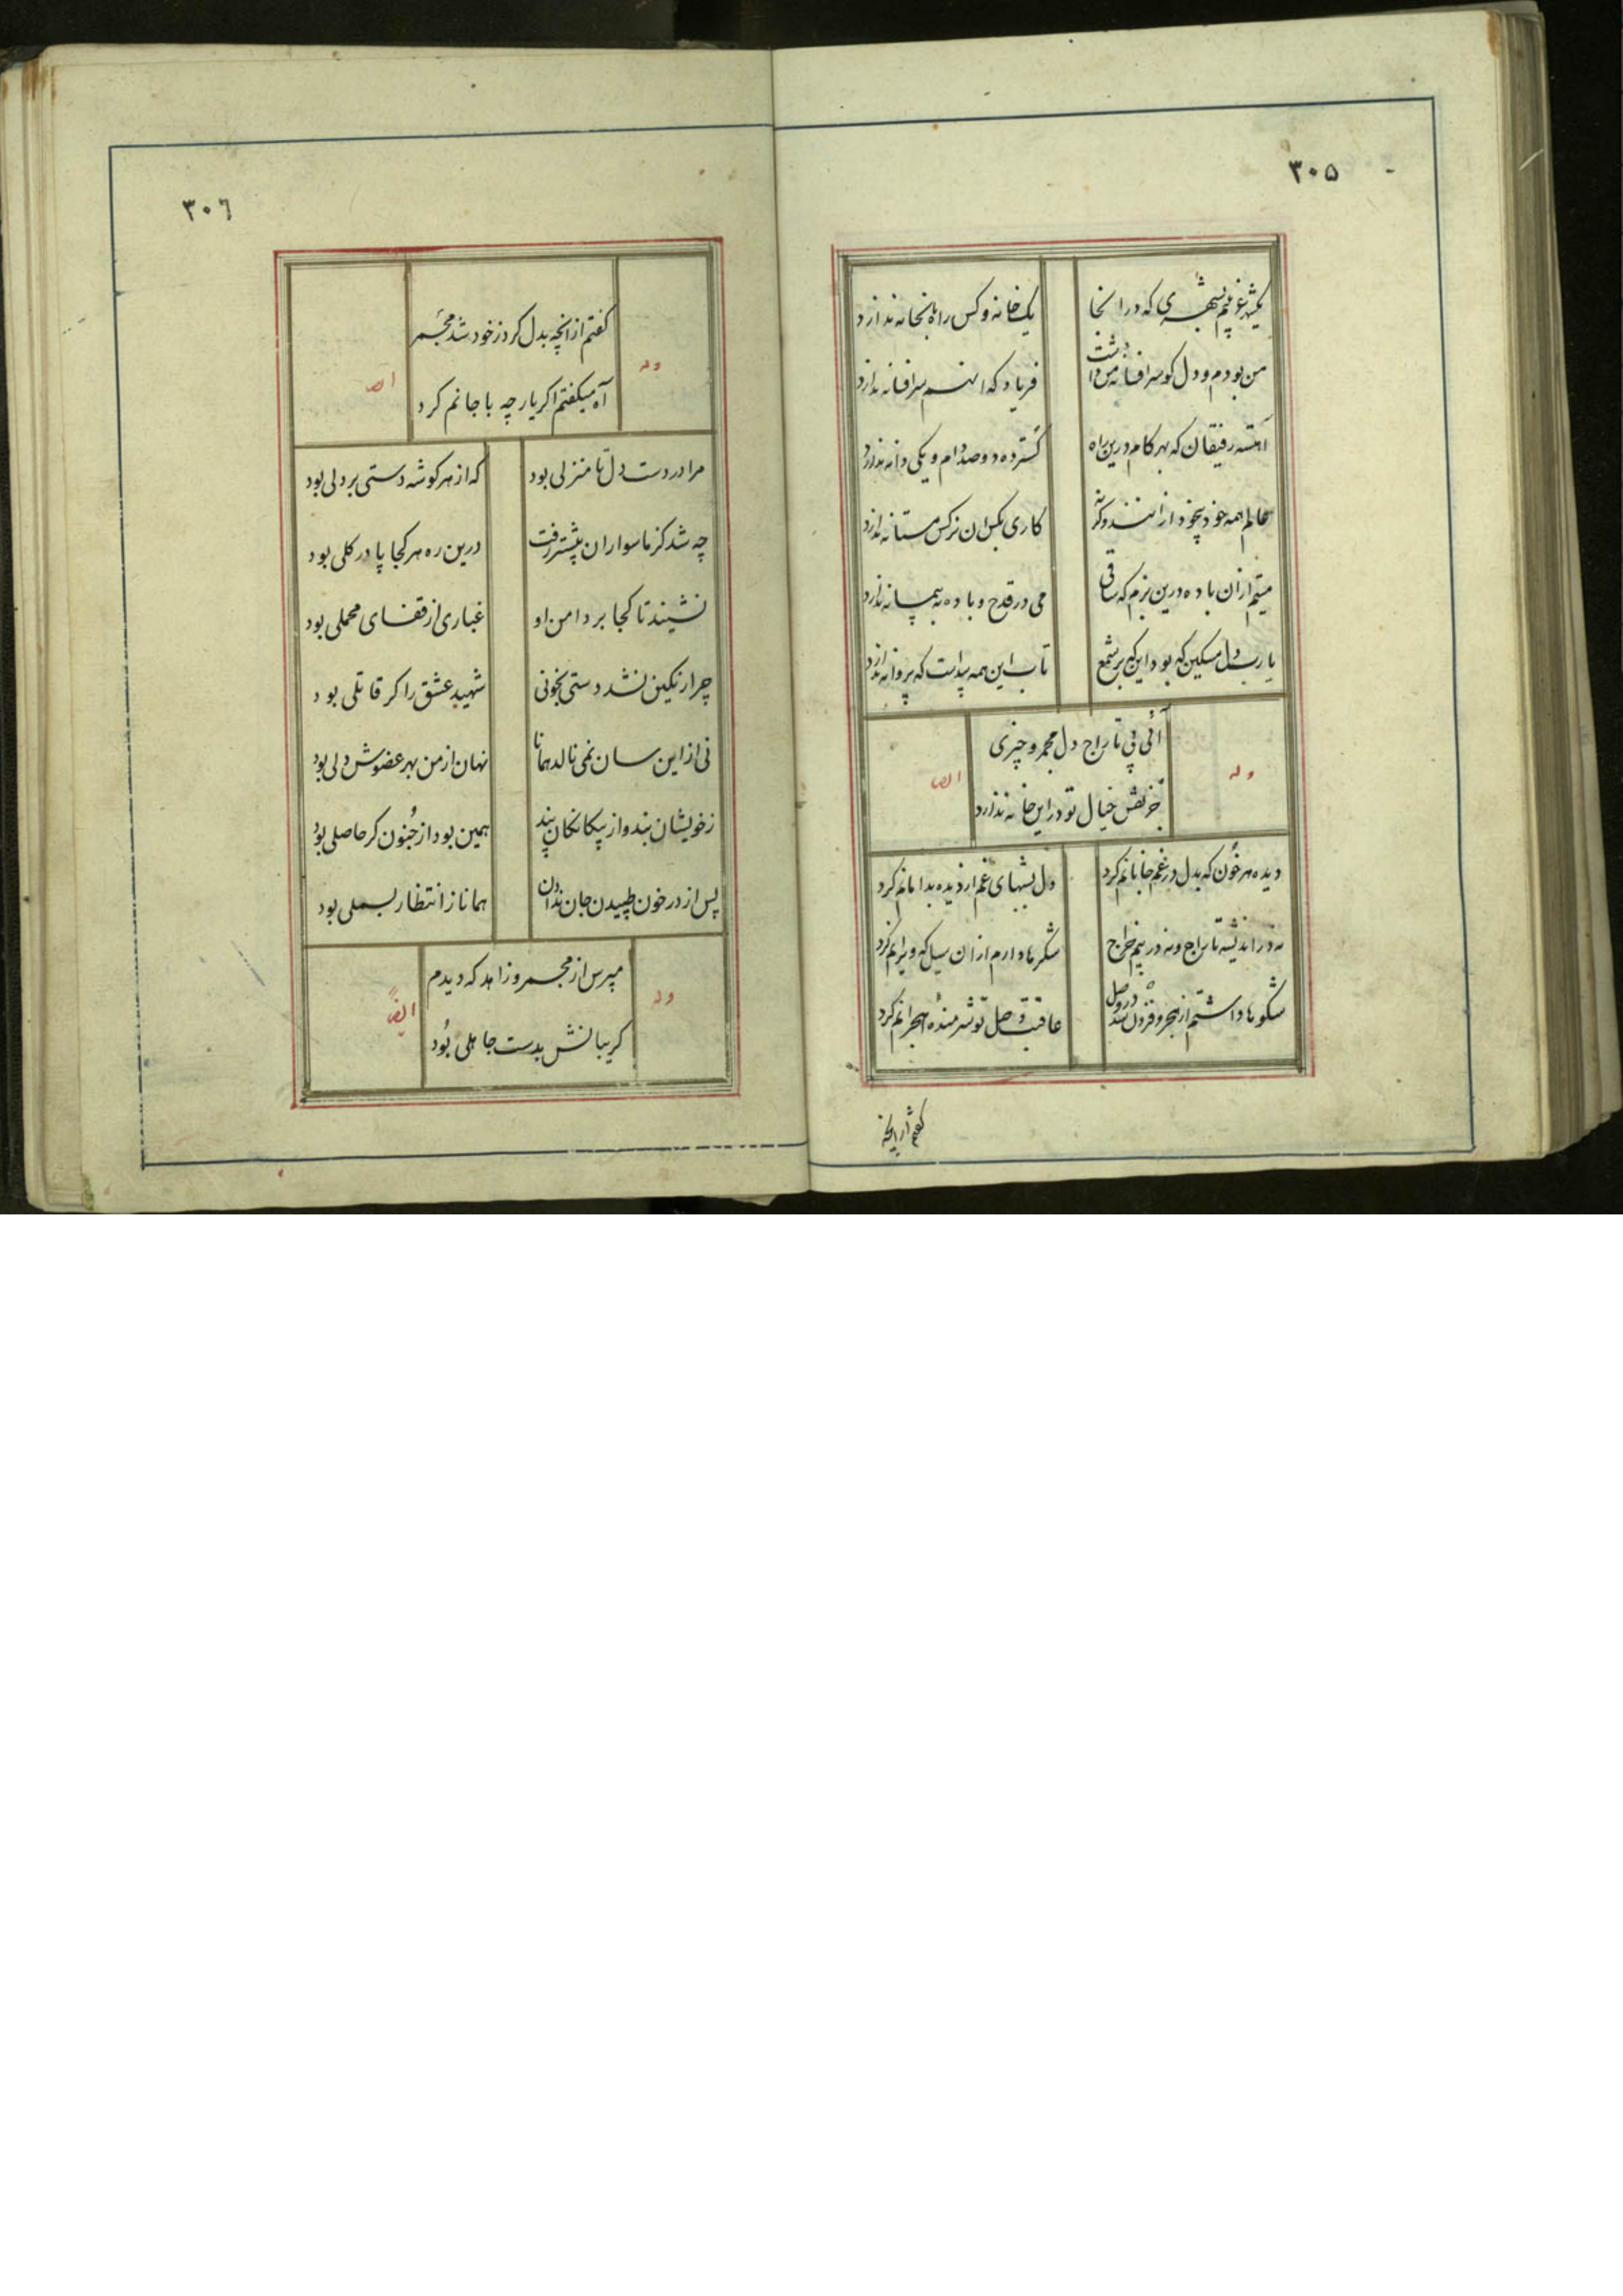 ۳۰۵
یکشهر غریبیم بشهری که در انجا
یک خانه و کس راه بانخانه ندارد
من بودم و دل کو سر افسانه من داشت
فریاد که او هم سر افسانه ندارد
آهسته رفیقان که بهر کام درین راه
کسترده دو صد دام و یکی دانه ندارد
عالم همه خود بیخود ازانند وکرنه
کاری بکس ان نرکس مستانه ندارد
مستیم ازان باده درین بزم که ساقی
می در قدح و باده به پیمانه ندارد
یا رب دل مسکین که بود این که بر شمع
تاب این همه پیداست که پروانه ندارد
وله
آئی پی تاراج دل مجمر و چیزی
جز نقش خیال تو دراین خانه ندارد
ایضا
دیده هر خون که بدل در غم جانانم کرد
دل بشبهای غم از دیده بدامانم کرد
نه در اندیشه تاراج و نه در بیم خراج
شکرها دارم ازان سیل که ویرانم کرد
شکوه ها داشتم از هجر و فزون شد در وصل
عاقبت وصل تو شرمنده هجرانم کرد
کفتم از انچه
۳۰۶
وله
کفتم از انچه بدل کرد ز خود شد مجمر
آه میکفتم اکر یار چه با جانم کرد
ایضا
مرا در دست دل تا منزلی بود
که از هر کوشه دستی بر دلی بود
چه شد کز ما سواران پیشتر رفت
درین ره هر کجا پا در کلی بود
نشیند تا کجا بر دامن او
غباری از قفای محملی بود
چرا رنکین نشد دستی بخونی
شهید عشق را کر قاتلی بود
نی از این سان نمی نالد همانا
نهان از من بهر عضوش دلی بود
ز خویشان بند و از بیکانکان پند
همین بود از جنون کر حاصلی بود
پس از در خون طپیدن جان ندادن
همانا ز انتظار بسملی بود
وله
مپرس از مجمر و زاهد که دیدم
کریبانش بدست جاهلی بود
ایضاً